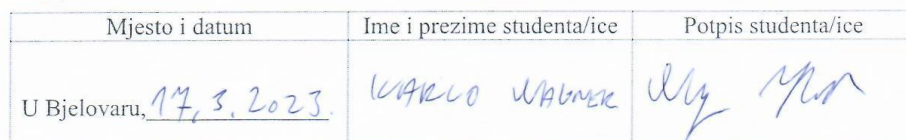 Mjesto i datum Ime i prezime studenta/ice Potpis studenta/ice
U Bjelovaru, 17.3.2023. KARLO WAGNER